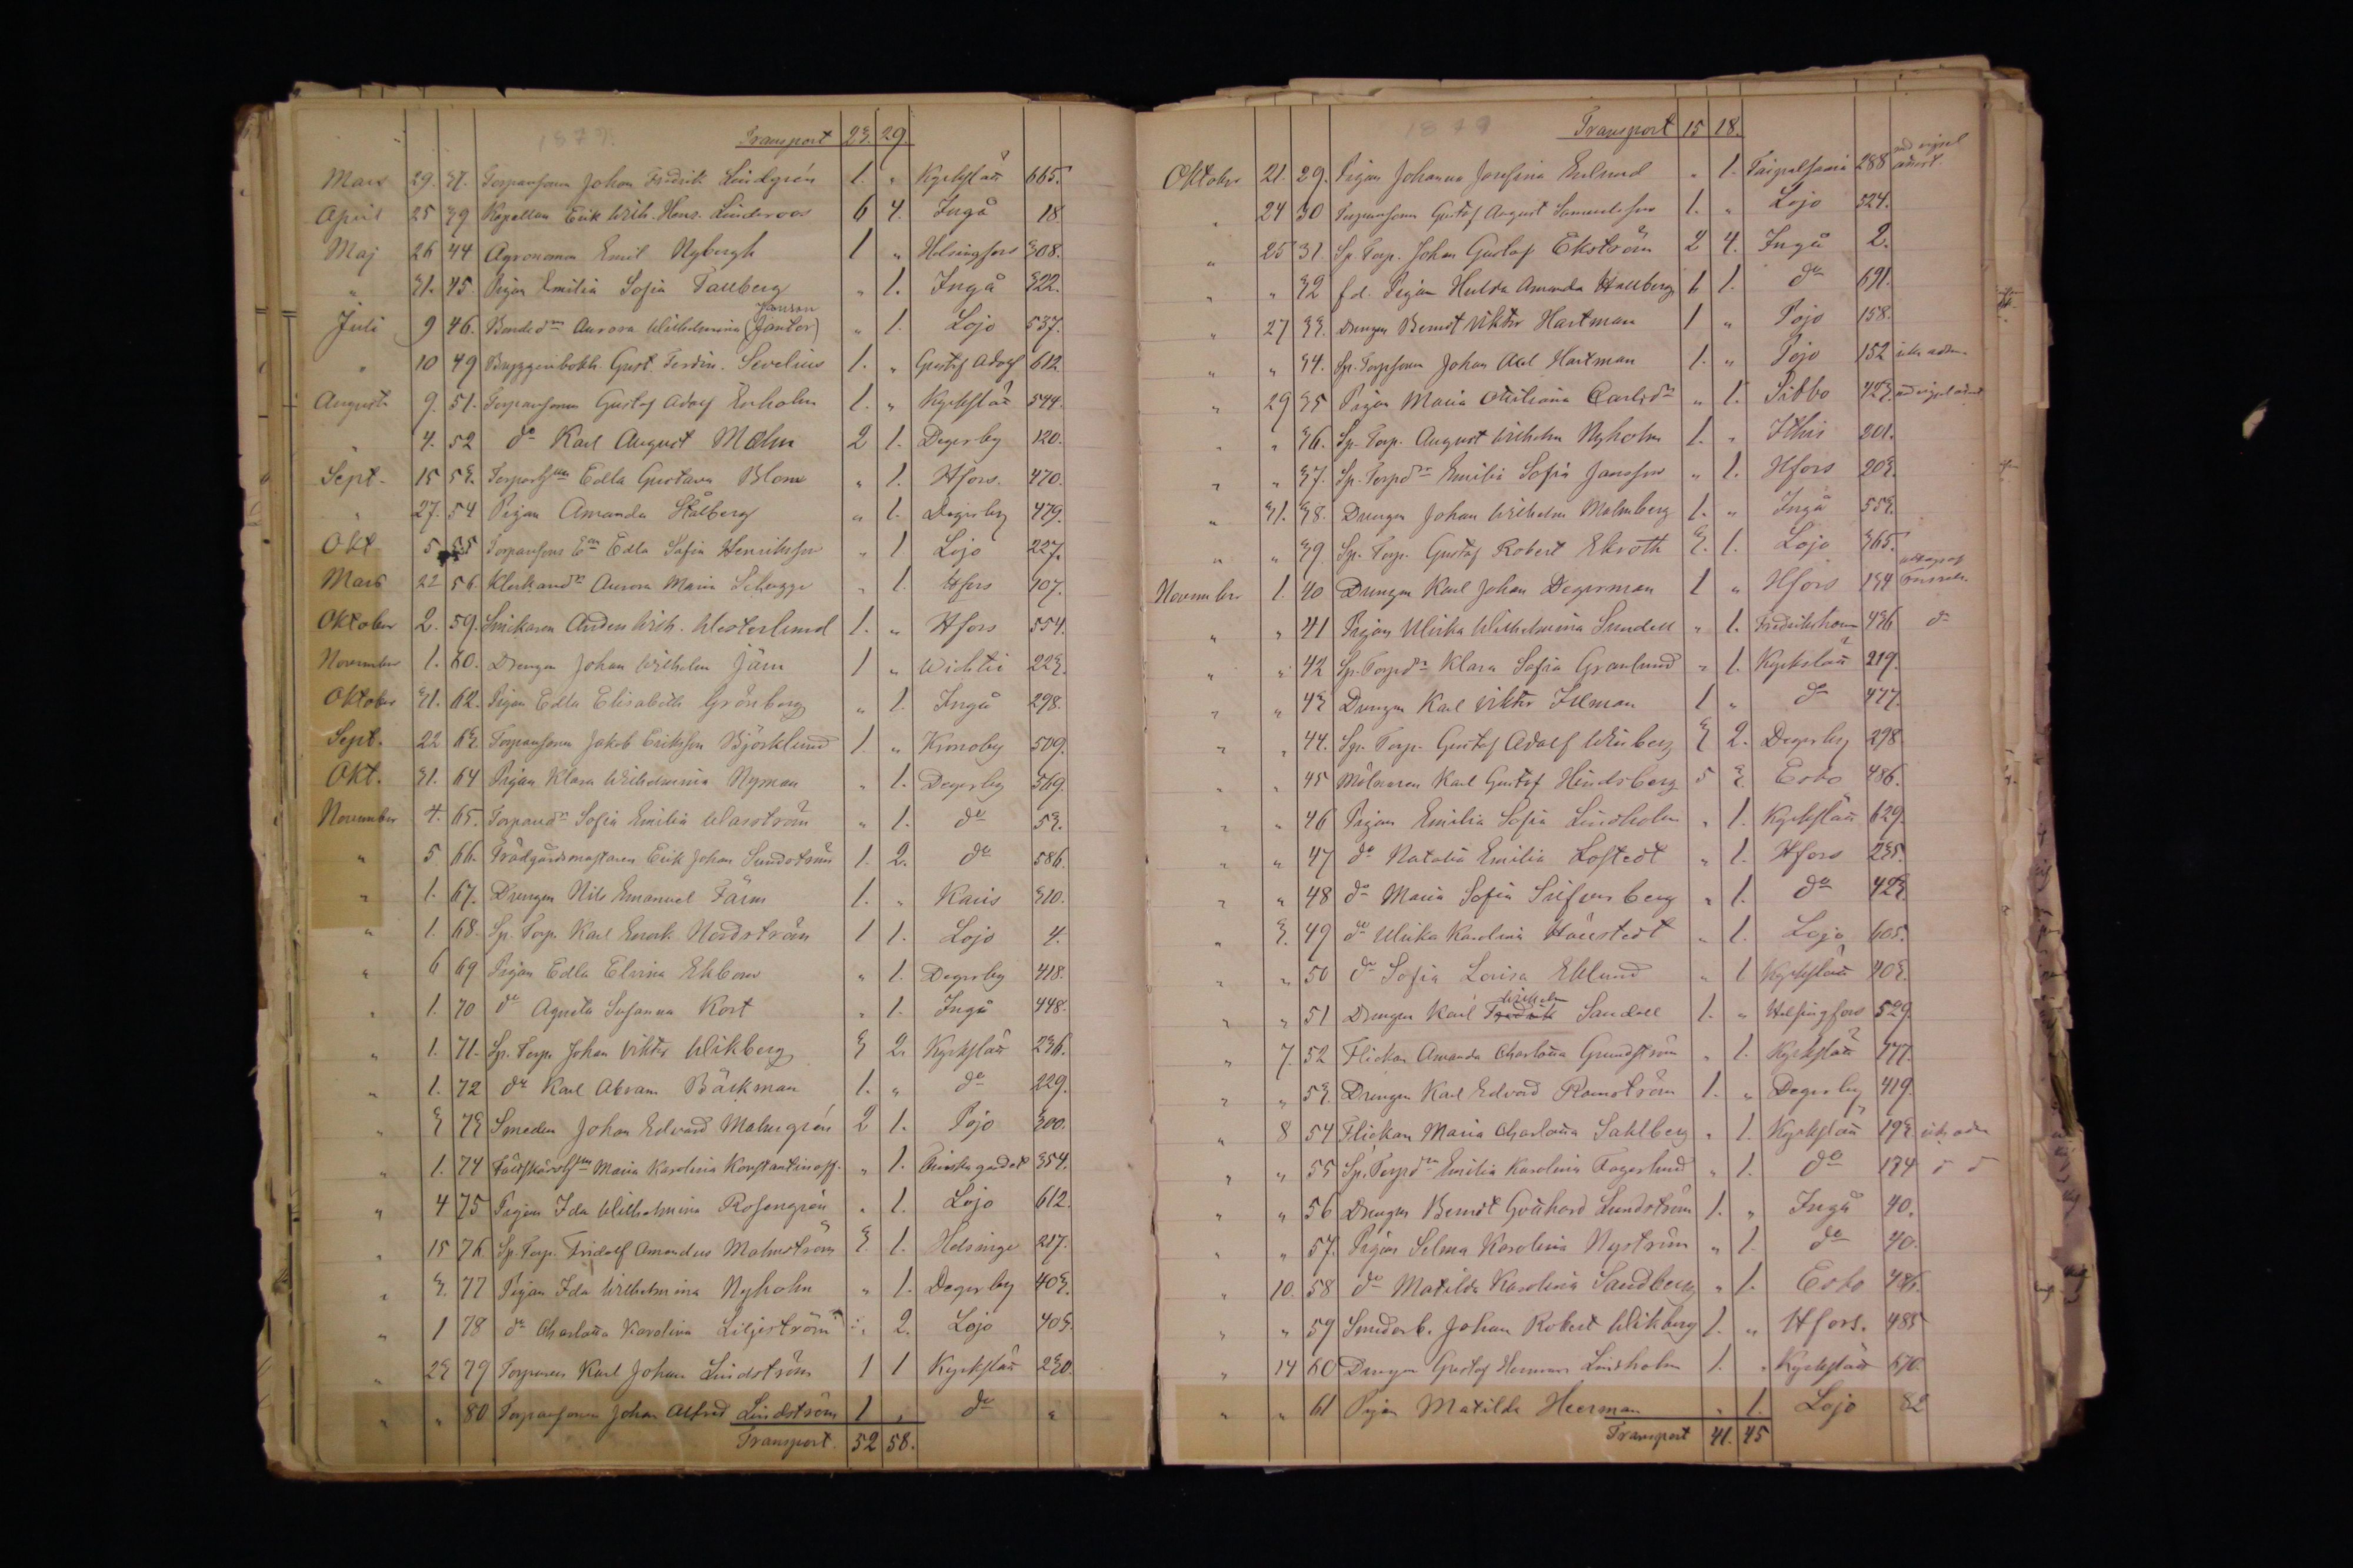 1879.
Transport 23. 29.
Mars 29. 37. Torparesonen Johan Fredrik Lindgrén 1. " Kyrkslätt 665.
April 25 39 Kapellan Erik Wilh. Hens. Linderoos 6 4. Ingå 18.
Maj 26 44 Agronomen Emil Nybergh 1 " Helsingfors 308.
" 31. 45. Pigan Emilia Sofia Tallberg " 1. Ingå 322.
Jansson
Juli 9 46. Bonded:n Aurora Wilhelmina (Jantor) " 1. Lojo 537.
" 10 49 Gust. Ferdin. Sevelius 1. " Gustaf Adolf 612.
Augusti 9. 51. Torparesonen Gustaf Adolf Enholm 1. " Kyrkslätt 544.
" 4. 52 d:o Karl August Malm 2 1. Degerby 120.
Sept. 15 53. Edla Gustava Blom " 1. Hfors. 470.
" 27. 54 Pigan Amanda Stålberg " 1. Degerby 479.
Okt 5 55 Torparesons E:an Edla Sofia Henriksson " 1 Lojo 227.
Mars 22 56 Aurora Maria " 1. Hfors 407.
Oktober 2. 59. Snickaren Anders Wilh. Westerlund 1. " Hfors 554.
November 1. 60. Drengen Johan Wilhelm Järn 1 " Wichtis 223.
Oktober 31. 62. Pigan Edla Elisabeth Grönberg " 1. Ingå 298.
Sept. 22 63. Torparesonen Jakob Eriksson Björklund 1. " Kronoby 509.
Okt. 31. 64 Pigan Klara Wilhelmina Nyman " 1. Degerby 569.
November 4. 65. Torpared:r Sofia Emilia Wasström " 1. d:o 53.
" 5 66. Trädgårdsmästaren Erik Johan Sundström 1. 2. d:o 586.
" 1. 67. Drengen Nils Emanuel Färm 1. " Karis 310.
" 1. 68. Sp. Torp. Karl Enok Nordström 1 1. Lojo 4.
" 6 69 Pigan Edla Elvira Ekbom " 1. Degerby 418.
" 1. 70 d:o Agneta Susanna Kort " 1. Ingå 448.
" 1. 71. Sp. Torp. Johan Viktor Wikberg 3 2. Kyrkslätt 236.
" 1. 72 d:o Karl Abram Bäckman 1. " d:o 229.
" 3 73 Smeden Johan Edvard Malmgrén 2 1. Pojo 300.
" 1. 74 Maria Karolina Konstantinoff. " 1. 354.
" 4 75 Pigan Ida Wilhelmina Rosengrén " 1. Lojo 612.
" 15 76 Sp. Torp. Fridolf Amandus Malmström 3. 1. Helsinge 217.
" 3. 77 Pigan Ida Wilhelmina Nyholm " 1. Degerby 403.
" 1 78 d:o Charlotta Karolina Liljeström " 2. Lojo 403.
" 23 79 Torparen Karl Johan Lindström 1 1 Kyrkslätt 230.
" " 80 Torparesonen Johan Alfred Lindström 1 " d:o "
Transport. 52 58.
1879
Transport 15 18.
Oktober 21. 29. Pigan Johanna Josefina Enlund " 1. Taipalsaari 288
" 24 30 Torparesonen Gustaf August Samuelsson 1. " Lojo 324.
" 25 31. Sp. Torp. Johan Gustaf Ekström 2 4. Ingå 2.
" " 32 f.d. Pigan Hulda Amanda Hallberg 1 1. d:o 691.
" 27 33. Drengen Berndt Viktor Hartman 1 " Pojo 158.
" " 34. Sp. Torpsonen Johan Axel Hartman 1. " Pojo 152
" 29 35 Pigan Maria Christiana Carlsd:r " 1. Sibbo 423.
" " 36. Sp. Torp. August Wilhelm Nyholm 1. " Ithis 201.
" " 37. Sp. Torpd:r Emilia Sofia Jansson " 1. Hfors 203.
" 31. 38. Drengen Johan Wilhelm Malmberg 1. " Ingå 553.
" " 39 Sp. Torp. Gustaf Robert Ekroth 3. 1. Lojo 365.
November 1. 40 Drengen Karl Johan Degerman 1 " Hfors 134
" " 41 Pigan Ulrika Wilhelmina Sundell " 1. Fredrikshamn 436 d:o
" " 42 Sp. Torpd:r Klara Sofia Granlund " 1. Kyrkslätt 219.
" " 43 Drengen Karl Viktor Illman 1 " d:o 477.
" " 44. Sp. Torp. Gustaf Adolf Winberg 3 2. Degerby 298
" " 45 Mölnaren Karl Gustaf Hindsberg 5 3. Esbo 486.
" " 46 Pigan Emilia Sofia Lindholm " 1. Kyrkslätt 629.
" " 47 d:o Natalia Emilia Lofstedt " 1. Hfors 235.
" " 48 d:o Maria Sofia Silfversberg " 1. d:o 423.
" 3. 49 d:o Ulrika Karolina Hällstedt " 1. Lojo 605.
" " 50 d:o Sofia Lovisa Eklund " 1 Kyrkslätt 403.
Wilhelm
" " 51 Drengen Karl Fredrik Sandell 1. " Helsingfors 529.
" 7. 52 Flickan Amanda Charlotta Grundström " 1. Kyrkslätt 177.
" " 53. Drengen Karl Edvard Ramström 1. " Degerby 419.
" 8 54 Flickan Maria Charlotta Sahlberg " 1. Kyrkslätt 193
" " 55 Sp. Torpd:r Emilia Karolina Fagerlund " 1. d:o 134
" " 56 Drengen Berndt Gotthard Lundström 1. " Ingå 40.
" " 57. Pigan Selma Karolina Nyström " 1. d:o 40.
" 10. 58 d:o Matilda Karolina Sandberg " 1. Esbo 486.
" " 59 Smedarb. Johan Robert Wikberg 1. " Hfors. 485
" 14 60 Drengen Gustaf Herman Lindholm 1. " Kyrkslätt 670.
" " 61 Pigan Matilda Heerman " 1. Lojo 82
Transport 41. 45